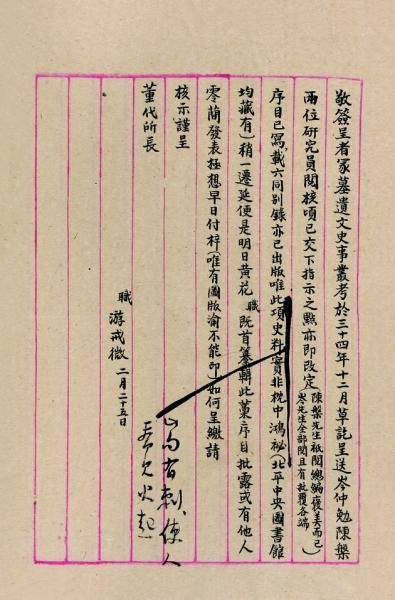 敬簽呈者冢墓遺文史事叢考於三十四年十二月草訖呈送岑仲勉陳槃
兩位研究員閱核頃已交下指示之點亦即改定
陳槃先生祇閱總編褒美而已
岑先生全部閱且有批覆各端
序目已寫載六同別錄亦已出版唯此項史料實非枕中鴻祕(北平中央圖書館
均藏有)稍一遷延便是明日黃花職既首纂輯此稾序目批露或有他人
零蕳發表極想早日付梓(唯有圖版渝不能即)如何呈繳請
核示謹呈
董代所長
職
游戒微 二月二十五日